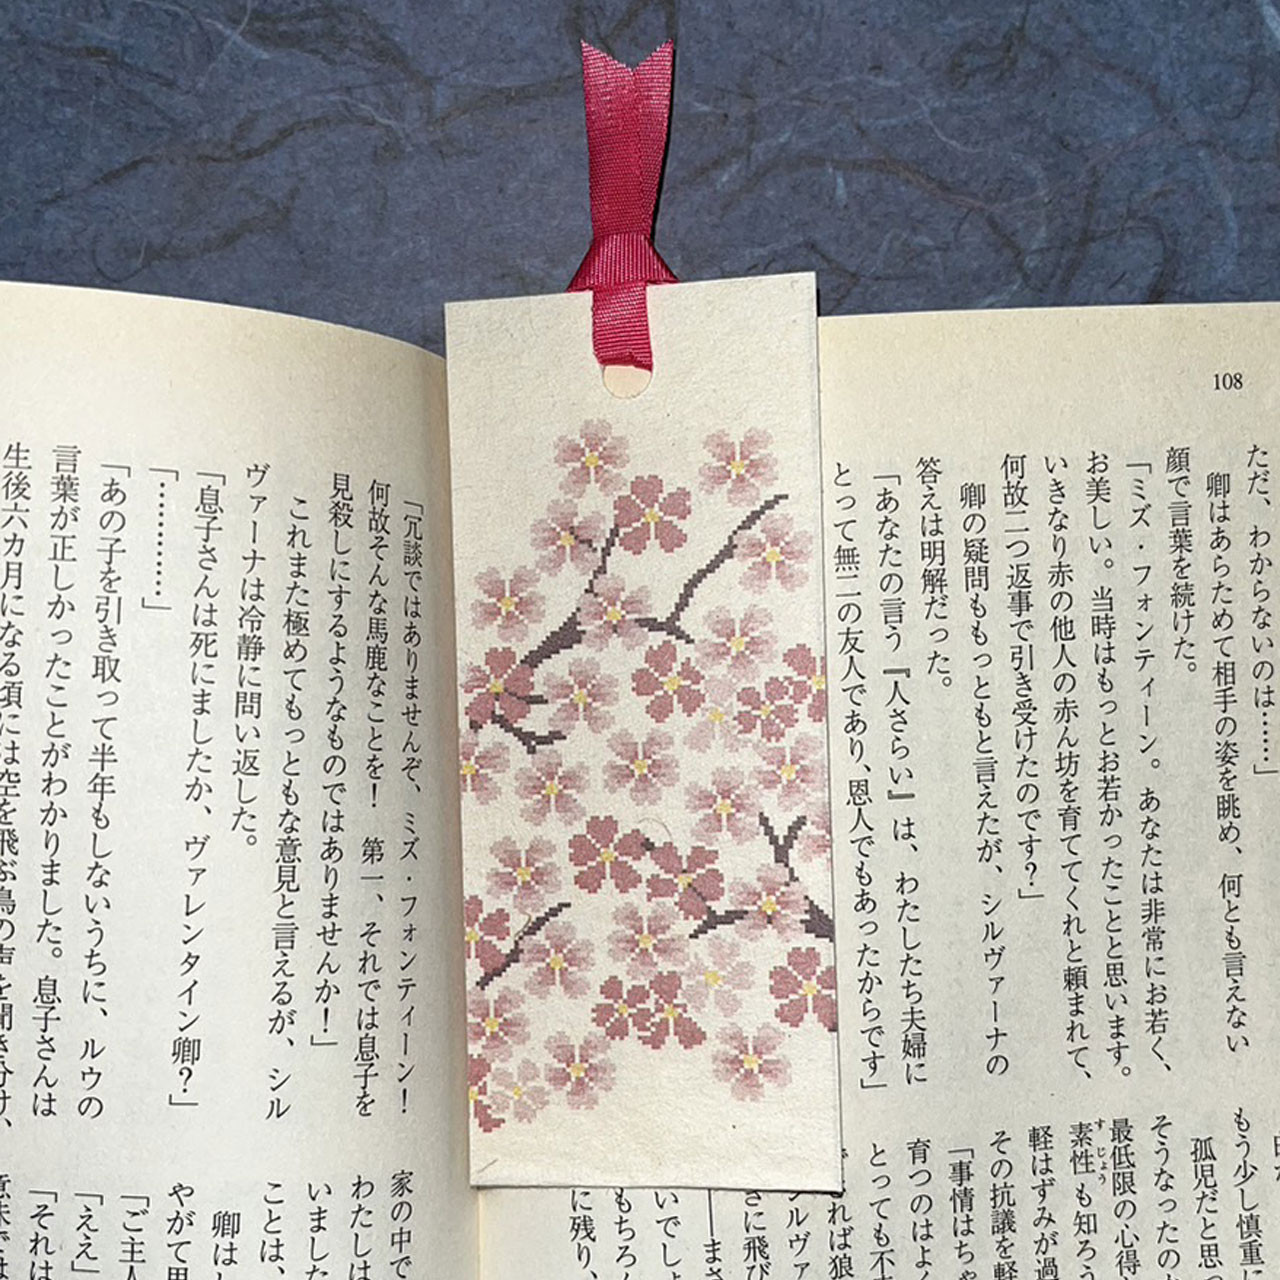 108
ただ、わからないのは……」
卿はあらためて相手の姿を眺め、何とも言えない
顔で言葉を続けた。
「ミズ・フォンティーン。あなたは非常にお若く、
お美しい。当時はもっとお若かったことと思います。
いきなり赤の他人の赤ん坊を育ててくれと頼まれて、
何故二つ返事で引き受けたのです?」
卿の疑問ももっともと言えたが、シルヴァーナの
答えは明解だった。
「あなたの言う『人さらい』は、わたしたち夫婦に
とって無二の友人であり、恩人でもあったからです」
「冗談ではありませんぞ、ミズ・フォンティーン!
何故そんな馬鹿なことを! 第一、それでは息子を
見殺しにするようなものではありませんか!」
これまた極めてもっともな意見と言えるが、シル
ヴァーナは冷静に問い返した。
「息子さんは死にましたか、ヴァレンタイン卿?」
「…………」
「あの子を引き取って半年もしないうちに、ルウの
言葉が正しかったことがわかりました。息子さんは
生後六カ月になる頃には空を飛ぶ鳥の声を聞き分け、
もう少し慎重に
孤児だと思
そうなったの
最低限の心得
素性も知ろう
すじょう
軽はずみが過
その抗議を軽
「事情はちゃ
育つのはよく
とっても不
れば狼
シルヴァ
さに飛び
──まさ
いでしょ
もちろん
に残り、
家の中で
わたしは
いました
ことは、
卿は
やがて思
「ご主人
「ええ」
「それは
意味では